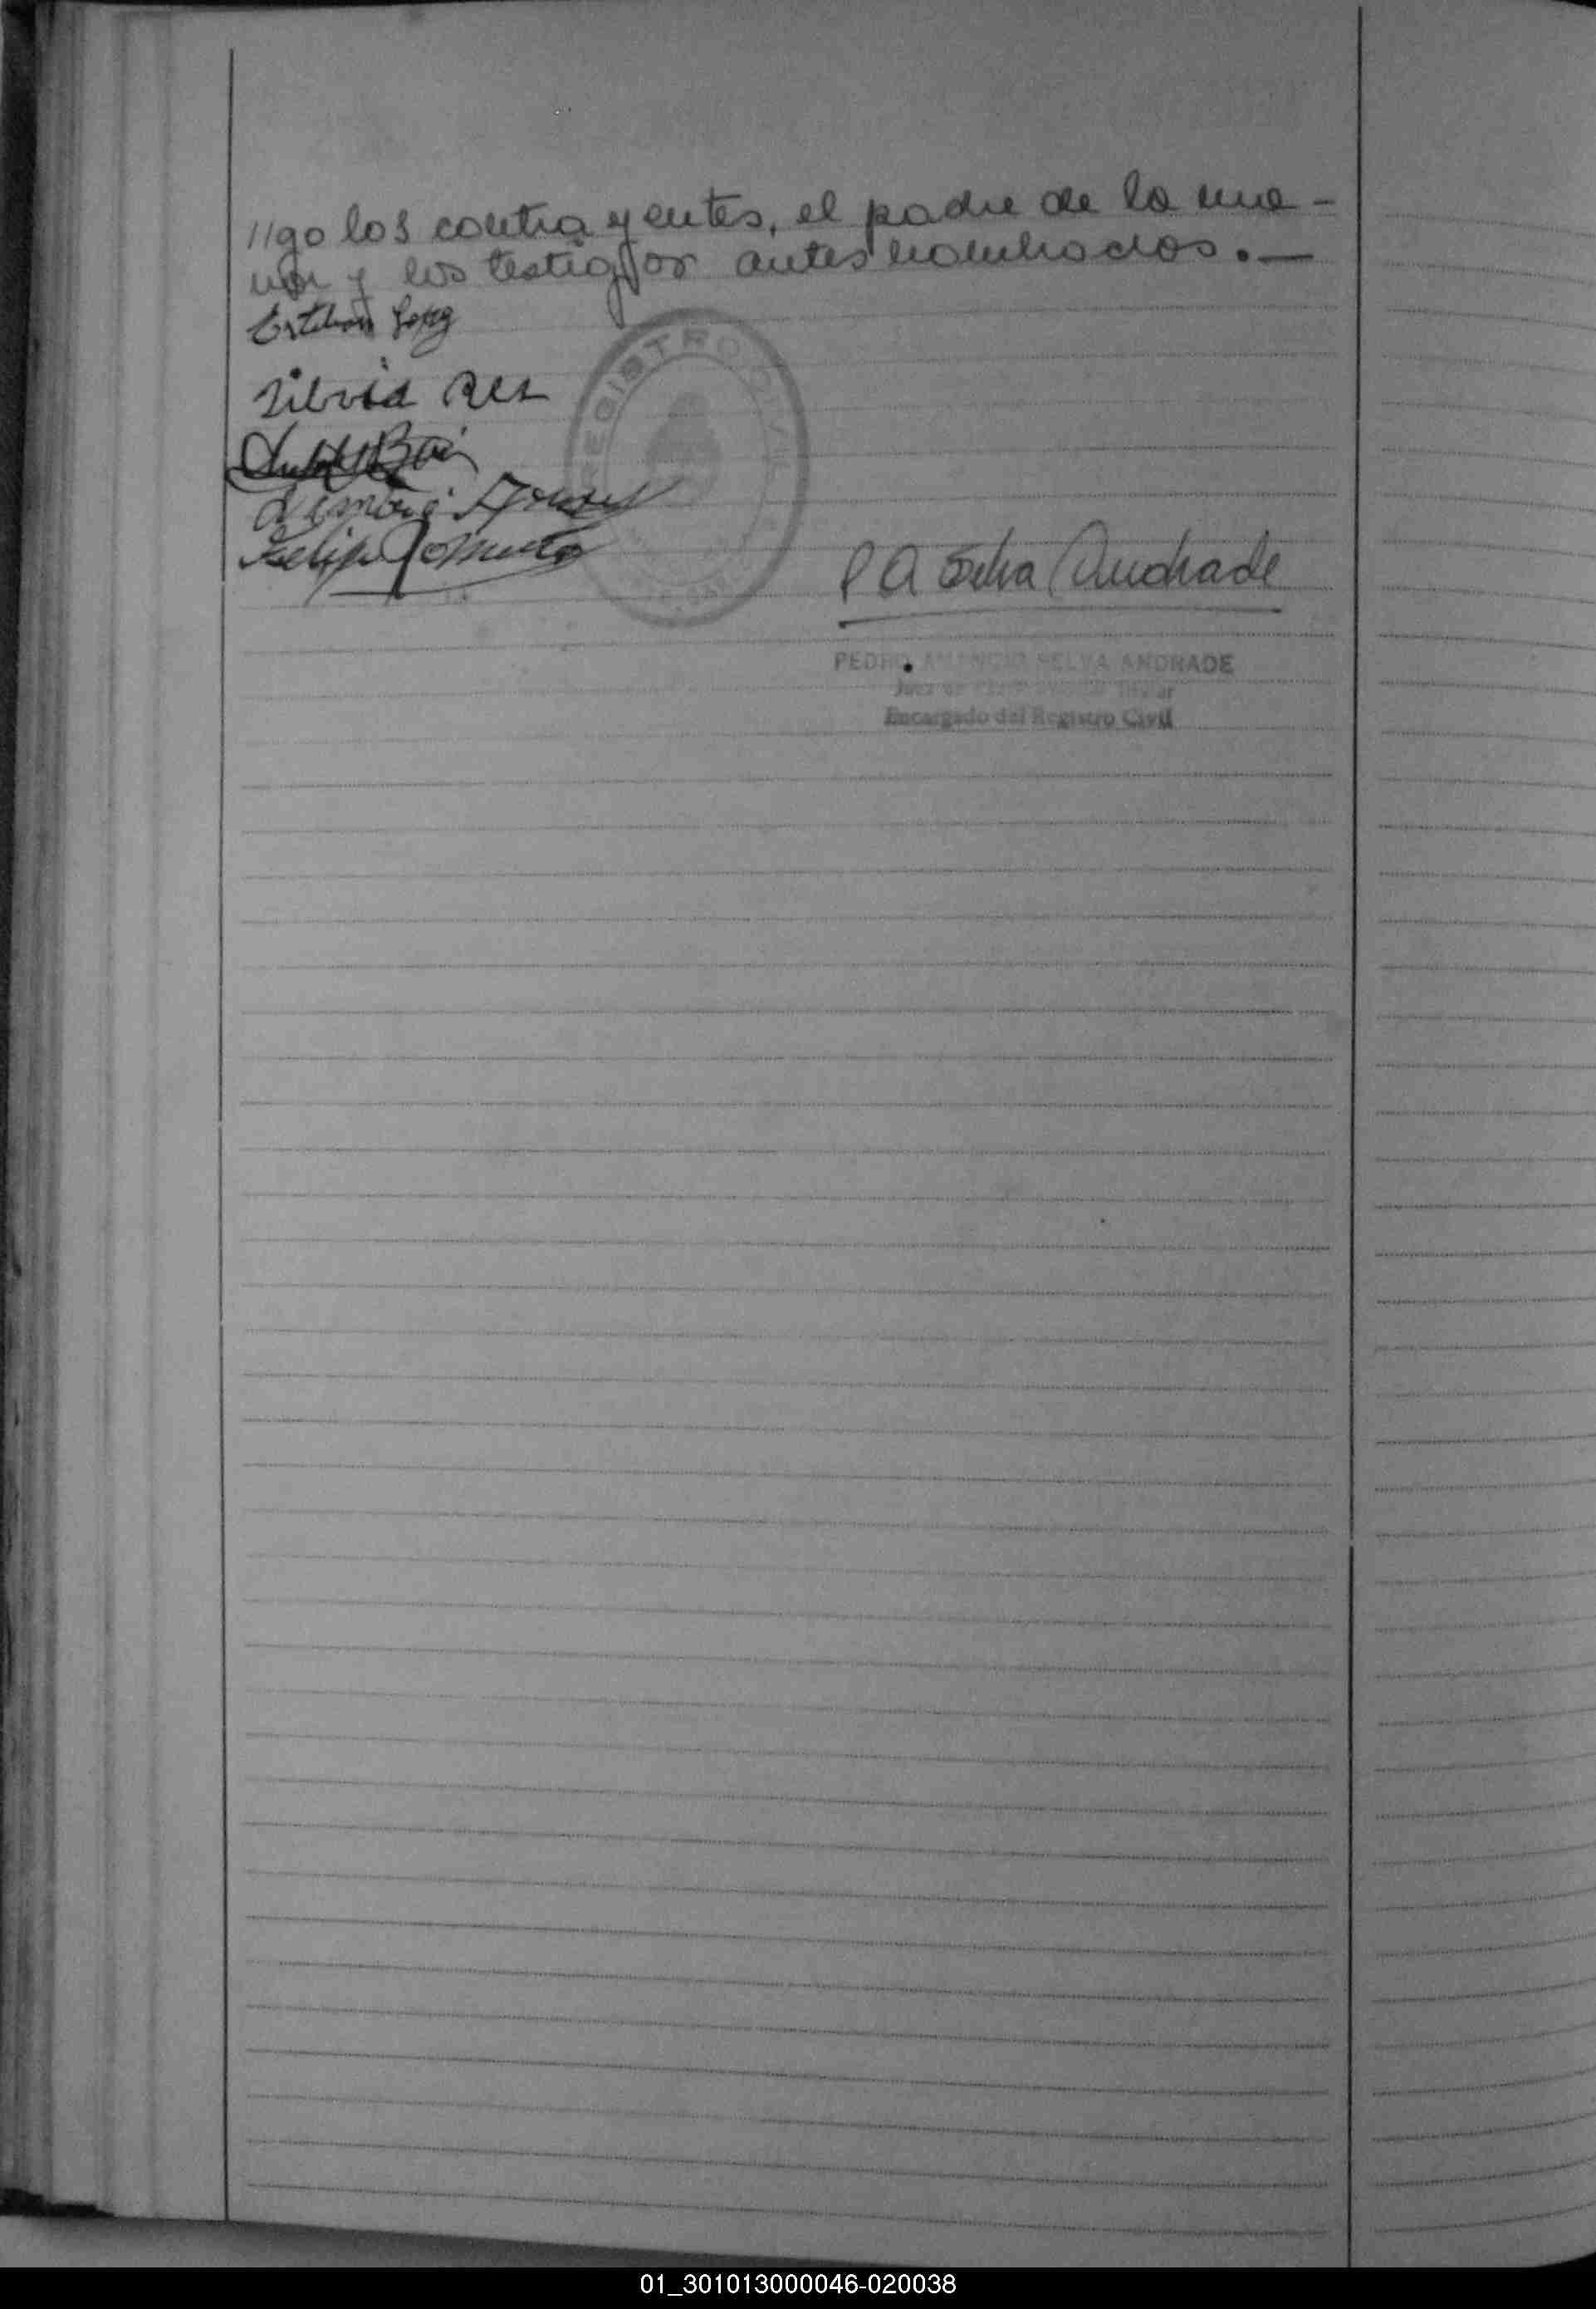 //go los contrayentes, el padre de la me-
nor y los testigos antes nombrados.—
Esteban Lopez
Silvia
REGISTRO CIVIL
Felipe
P A Selva Andrade
PEDRO AMANCIO SELVA ANDRADE
Juez de Titular
Encargado del Registro Civil
01_301013000046-020038